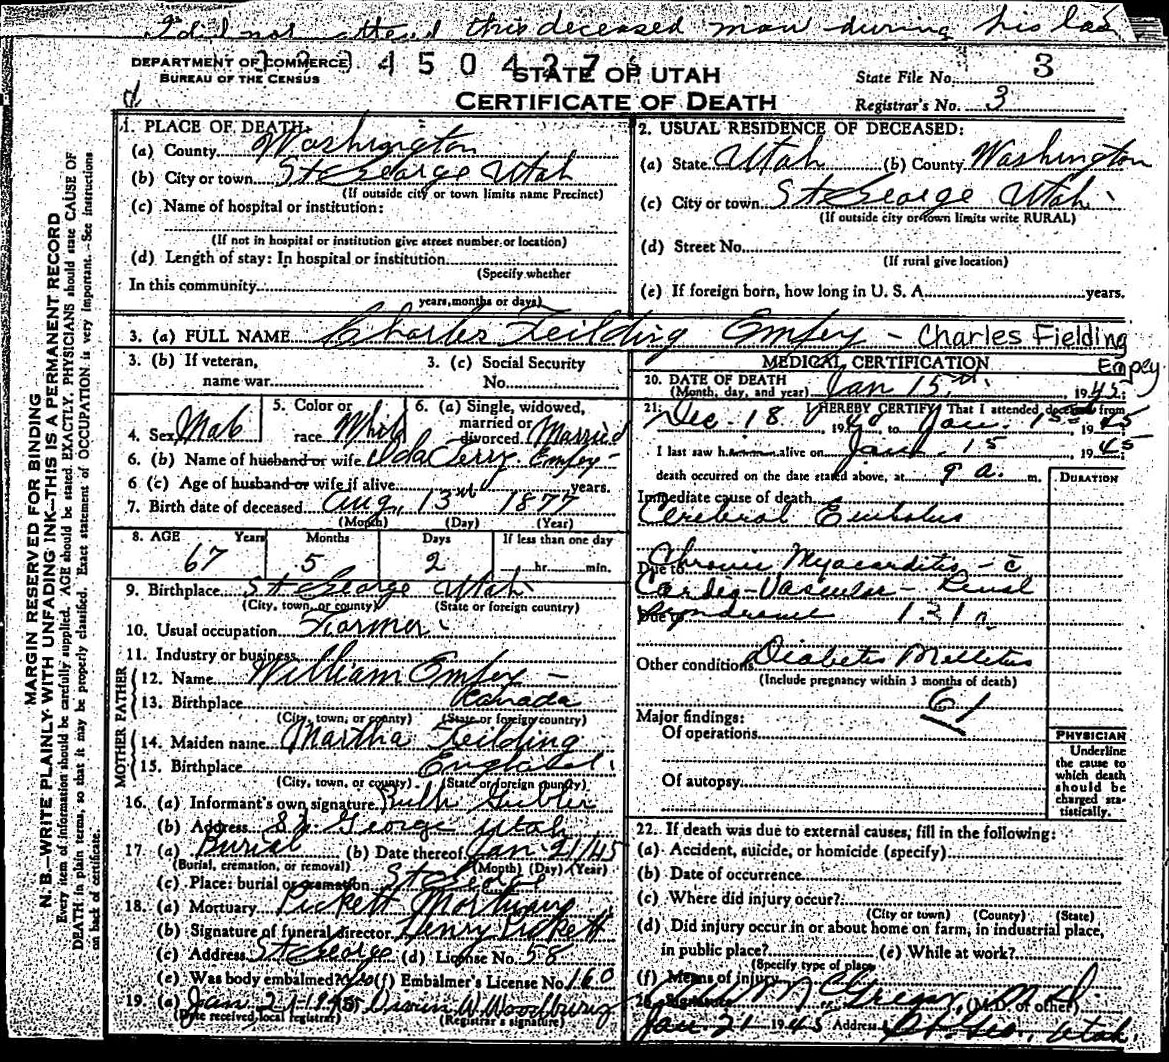 I did not attend this deceased man during his las
DEPARTMENT OF COMMERCE
BUREAU OF THE CENSUS
STATE OF UTAH
CERTIFICATE OF DEATH
State File No. 3
Registrar's No. 3
1. PLACE OF DEATH:
(a) County Washington
(b) City or town St George Utah
(If outside city or town limits name Precinct)
(c) Name of hospital or institution:
(If not in hospital or institution give street number or location)
(d) Length of stay: In hospital or institution
(Specify whether
In this community
years, months or days)
2. USUAL RESIDENCE OF DECEASED:
(a) State Utah (b) County Washington
(c) City or town St George Utah
(If outside city or town limits write RURAL)
(d) Street No.
(If rural give location)
(e) If foreign born, how long in U. S. A. years.
3. (a) FULL NAME Charles Feilding Empey - Charles Fielding
Empey
3. (b) If veteran,
name war
3. (c) Social Security
No.
4. Sex Male
5. Color or
race White
6. (a) Single, widowed,
married or
divorced Married
6. (b) Name of husband or wife Ida Terry Empey
6 (c) Age of husband or wife if alive years.
7. Birth date of deceased Aug, 13th 1877
(Month) (Day) (Year)
8. AGE Years Months Days If less than one day
67 5 2 hr. min.
9. Birthplace St George Utah
(City, town, or county) (State or foreign country)
10. Usual occupation Farmer
11. Industry or business
FATHER
12. Name William Empey
13. Birthplace Canada
(City, town, or county) (State or foreign country)
MOTHER
14. Maiden name Martha Feilding
15. Birthplace England
(City, town, or county) (State or foreign country)
16. (a) Informant's own signature Ruth Gubler
(b) Address St. George Utah
17. (a) Burial (b) Date thereof Jan 21/45
(Burial, cremation, or removal) (Month) (Day) (Year)
(c) Place: burial or cremation St George
18. (a) Mortuary Pickett Mortuary
(b) Signature of funeral director Henry Pickett
(c) Address St George (d) License No. 58
(e) Was body embalmed? (f) Embalmer's License No. 160
19. (a) Jan 21-1945
(Date received local registrar) (Registrar's signature)
MEDICAL CERTIFICATION
20. DATE OF DEATH
(Month, day, and year) Jan 15th 1945
21. I HEREBY CERTIFY That I attended deceased from
Dec. 18 19 to Jan. 15 1945
I last saw h alive on Jan. 15 1945
death occurred on the date stated above, at 9 a. m.
DURATION
Immediate cause of death
Cerebral Embolus
Due to Chronic Myocarditis - c
Cardio-Vascular-Renal
Due to Syndrome 131a
Other conditions Diabetes Mellitus
(Include pregnancy within 3 months of death)
61
Major findings:
Of operations
Of autopsy
PHYSICIAN
Underline
the cause to
which death
should be
charged sta-
tistically.
22. If death was due to external causes, fill in the following:
(a) Accident, suicide, or homicide (specify)
(b) Date of occurrence
(c) Where did injury occur?
(City or town) (County) (State)
(d) Did injury occur in or about home on farm, in industrial place,
in public place? (e) While at work?
(Specify type of place)
(f) Means of injury
23. Signature McGregor, M.D. (M.D. or other)
Jan. 21 1945 Address St. Geo. Utah
MARGIN RESERVED FOR BINDING
N. B.—WRITE PLAINLY WITH UNFADING INK—THIS IS A PERMANENT RECORD
Every item of information should be carefully supplied. AGE should be stated EXACTLY. PHYSICIANS should state CAUSE OF
DEATH in plain terms, so that it may be properly classified. Exact statement of OCCUPATION is very important. See instructions
on back of certificate.